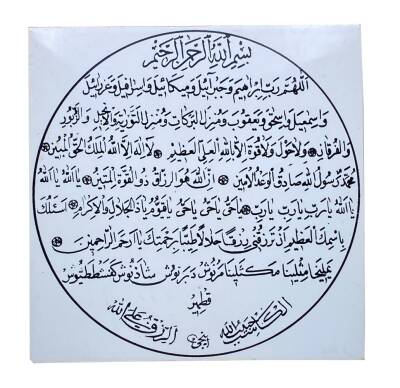 بسم الله الرحمن الرحيم
اللهم رب ابراهيم وجبرآئيل وميكائيل واسرافيل وعزرائيل
واسمعيل واسحق ويعقوب ومنزل البركات ومنزل التورية والانجيل والزبور
والفرقان ولا حول ولا قوة الا بالله العلي العظيم لا اله الا الله الملك الحق المبين
محمد رسول الله صادق الوعد الامين ان الله هو الرزاق ذو القوة المتين يا الله يا الله
يا الله يا رب يا رب يا رب يا حي يا حي يا حي يا قيوم يا ذا الجلال والاكرام اسئلك
باسمك العظيم ان ترزقني رزقا حلالا طيبا برحمتك يا ارحم الراحمين
يمليخا مثلينا مكثلينا مرنوش دبرنوش شاذنوش كفشططيوش
قطمير
الكاسب حبيب الله الرزق على الله